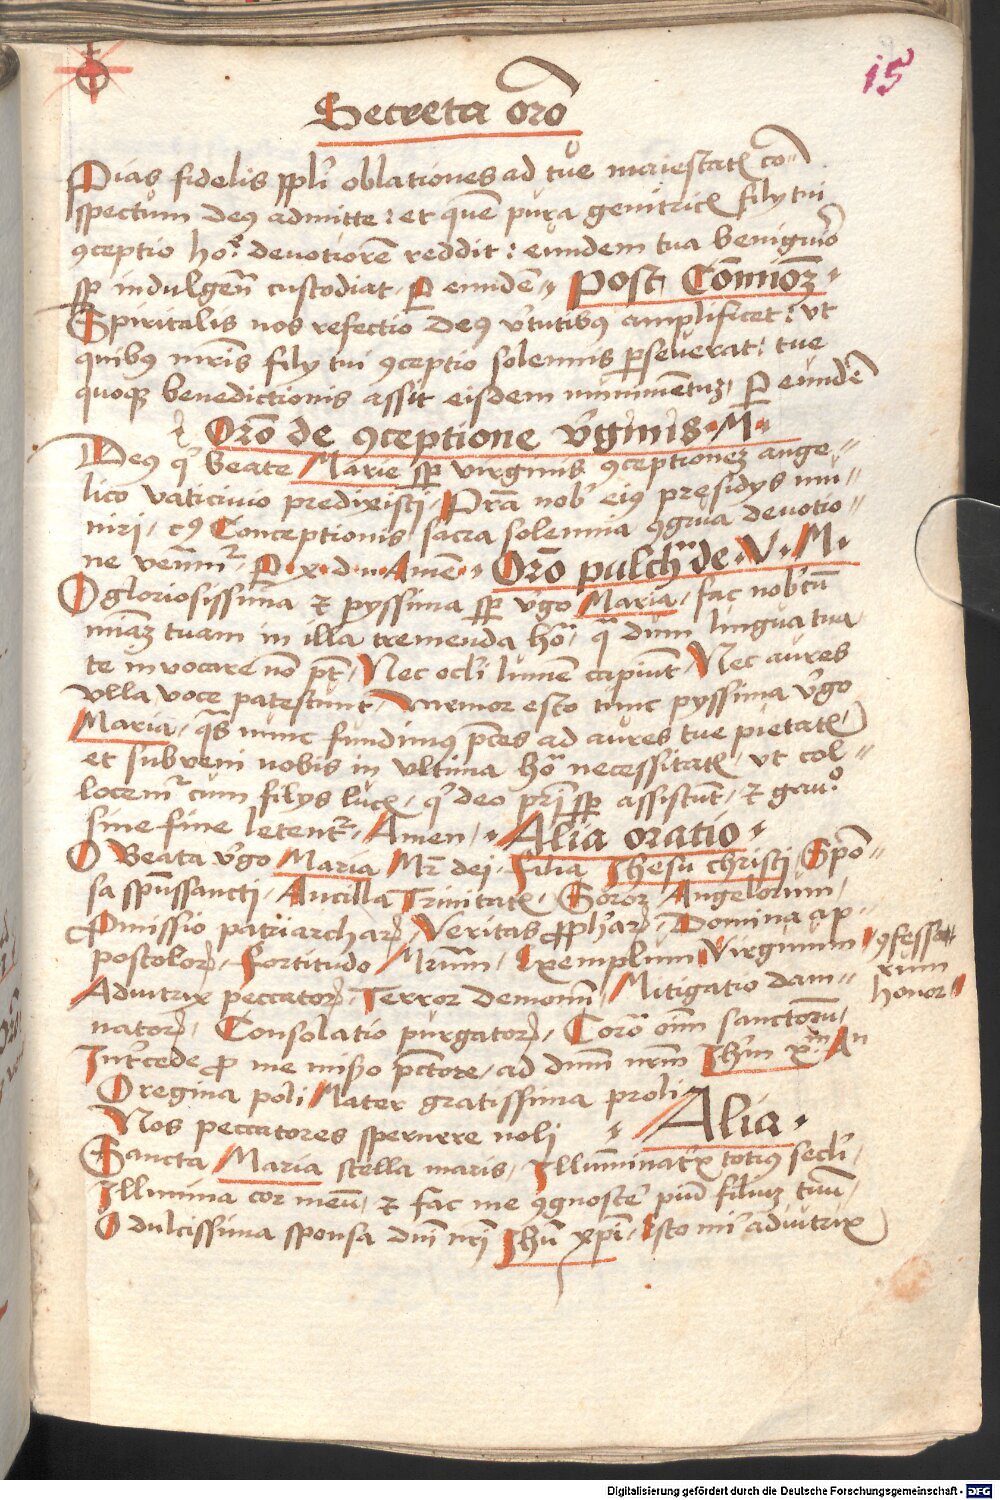 15
Secreta orō
Pias fidelis ppli oblationes ad tue maiestatꝭ con-
spectum deꝰ admitte: et que pura genitricꝭ filij tui
ꝯceptio hoꝫ devotiorē reddit: eundem tua benignio
sp indulgen custodiat. P eunde Post Cōmioꝫ
Spiritalis nos refectio deꝰ vtutibꝰ amplificet: vt
quibꝰ mris filij tui ꝯceptio solemnis pseuerat: tue
quoqꝫ benedictionis assit eisdem munimētuꝫ. P eundē
Orō de ꝯceptione vginis M
Deꝰ q beate Marie sp virginis ꝯceptioneꝫ ange-
lico vaticinio predixisti. Pra nob eiꝰ presidijs mu-
niri. cꝰ Conceptionis sacra solemnia ꝯgrua devotio-
ne venm̄. P. x. d. n. Amē. Orō pulch de. V. M.
O gloriosissima et pyssima sp vgo Maria. fac nobcū
miāꝫ tuam in illa tremenda ho. q dum lingua tua
te invocare nō pt. Nec ocli lumē capiūt. Nec aures
ulla voce patescunt. Memor esto tunc pyssima vgo
Maria. qs nunc fundimꝰ pces ad aures tue pietatꝭ
et subveni nobis in vltima ho necessitatꝭ. vt col-
locem cum filijs lucꝭ. q deo pri sp assistūt. et gau
sine fine letent. Amen. Alia oratio
O Beata vgo Maria Mr dei. Filia Jhesu christi Spō-
sa spūssancti. Ancilla Trinitatꝭ. Soror Angelorum.
Pmissio patriarchaꝝ Veritas ꝓphaꝝ. Domina ap-
postoloꝝ. Fortitudo Mrum. Exemplum Virginum ꝯfesso
rum
honor
Adiutrix peccatoꝝ. Terror demonū. Mitigatio dam-
natoꝝ. Consolatio purgatoꝝ. Corō oim sanctorum.
Intcede ꝓ me miso pctore. ad dnm nrm Jhm xm An
O regina poli Mater gratissima proli
Nos peccatores spernere noli Alia
Sancta Maria stella maris. Illuminatx totiꝰ secli.
Illumina cor meū. et fac me ꝯgnosce piū filiuꝫ tuū.
O dulcissima sponsa dni nri Jhu xpi. Esto mi adiutrix
Digitalisierung gefördert durch die Deutsche Forschungsgemeinschaft - DFG